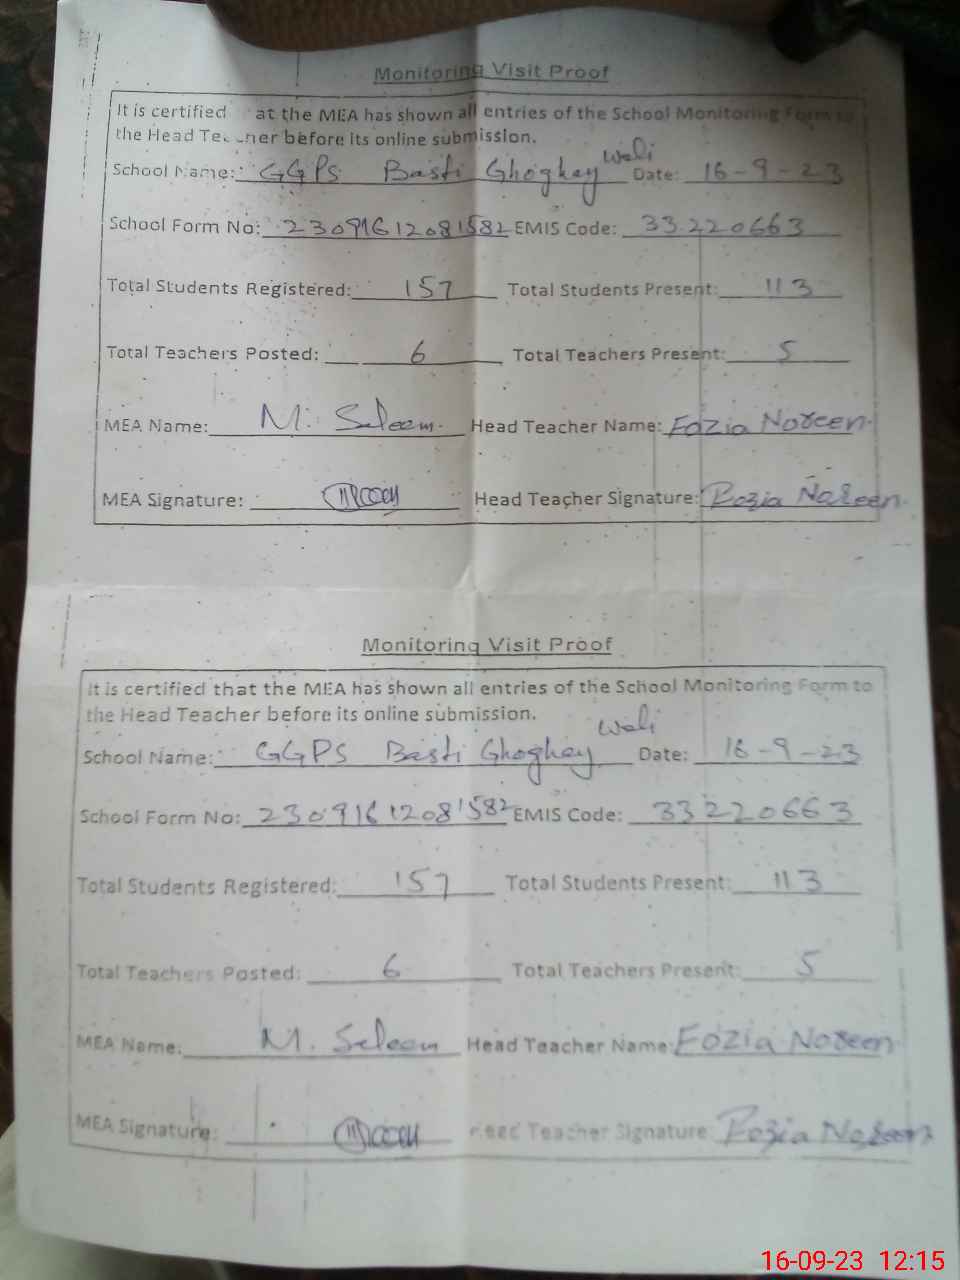 Monitoring Visit Proof
It is certified at the MEA has shown all entries of the School Monitoring Form to
the Head Teacher before its online submission.
School Name: GGPS Basti Ghoghay Wali Date: 16-9-23
School Form No: 23091612081582 EMIS Code: 33220663
Total Students Registered: 157 Total Students Present: 113
Total Teachers Posted: 6 Total Teachers Present: 5
MEA Name: M. Seleem Head Teacher Name: Fozia Noreen
MEA Signature: Head Teacher Signature: Fozia Noreen
Monitoring Visit Proof
It is certified that the MEA has shown all entries of the School Monitoring Form to
the Head Teacher before its online submission.
School Name: GGPS Basti Ghoghay Wali Date: 16-9-23
School Form No: 23091612081582 EMIS Code: 33220663
Total Students Registered: 157 Total Students Present: 113
Total Teachers Posted: 6 Total Teachers Present: 5
MEA Name: M. Seleem Head Teacher Name: Fozia Noreen
MEA Signature: Head Teacher Signature: Fozia Noreen
16-09-23 12:15